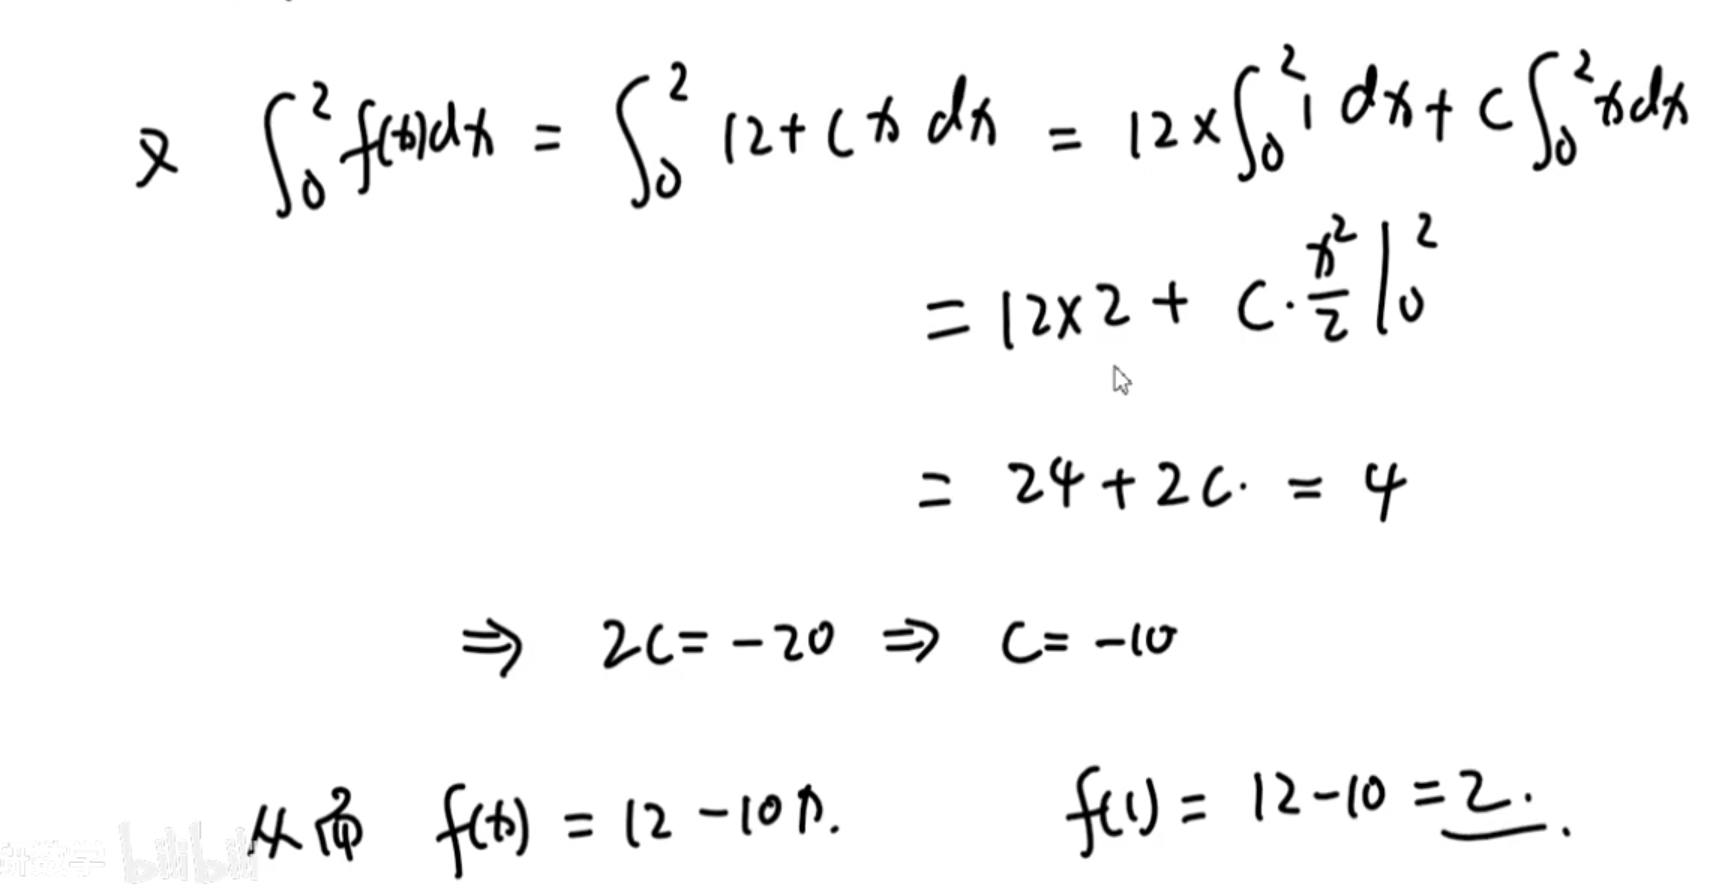 又 ∫₀² f(x)dx = ∫₀² 12+cx dx = 12×∫₀² 1 dx + C∫₀² xdx
= 12×2 + C·x²/2 |₀²
= 24+2C. = 4
⇒ 2C=-20 ⇒ C=-10
从而 f(x) = 12-10x. f(1) = 12-10 = 2.
研数学 bilibili